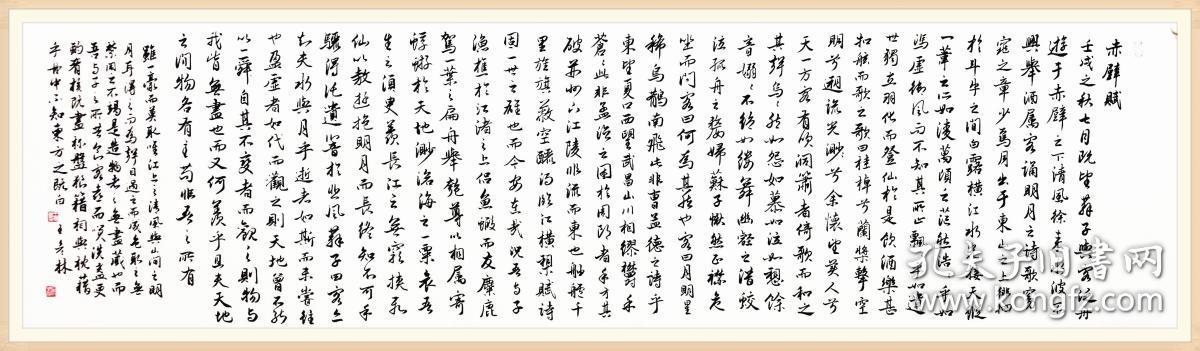 赤壁赋
壬戌之秋七月既望蘇子与客泛舟
遊于赤壁之下清風徐来水波不
興舉酒属客诵明月之诗歌窈
窕之章少焉月出于東山之上徘徊
於斗牛之间白露横江水光接天縱
一葦之所如凌萬頃之茫然浩浩乎如
馮虚御風而不知其所止飄飄乎如遗
世獨立羽化而登仙於是飲酒樂甚
扣舷而歌之歌曰桂棹兮蘭槳擊空
明兮溯流光渺渺兮余懷望美人兮
天一方客有吹洞簫者倚歌而和之
其聲嗚嗚然如怨如慕如泣如訴餘
音嫋嫋不绝如縷舞幽壑之潜蛟
泣孤舟之嫠婦蘇子愀然正襟危
坐而问客曰何為其然也客曰月明星
稀烏鵲南飛此非曹孟德之诗乎
東望夏口西望武昌山川相繆鬱乎
蒼蒼此非孟德之困於周郎者乎方其
破荆州下江陵順流而東也舳艫千
里旌旗蔽空釃酒臨江横槊賦詩
固一世之雄也而今安在哉况吾与子
漁樵於江渚之上侣魚蝦而友麋鹿
駕一葉之扁舟舉匏尊以相属寄
蜉蝣於天地渺滄海之一粟哀吾
生之須臾羨長江之無窮挟飛
仙以敖遊抱明月而長终知不可乎
驟得托遺響於悲風蘇子曰客亦
知夫水與月乎逝者如斯而未嘗往
也盈虚者如代而觀之則天地曾不能
以一瞬自其不變者而觀之則物与
我皆無盡也而又何羨乎且夫天地
之间物各有主苟非吾之所有
雖一毫而莫取惟江上之清風與山间之明
月耳得之而為聲目遇之而成色取之無
禁用之不竭是造物者之無盡藏也而
吾与子之所共食客喜而笑洗盏更
酌肴核既盡杯盤狼藉相與枕藉
乎舟中不知東方之既白
孔夫子旧书网
www.kongfz.com